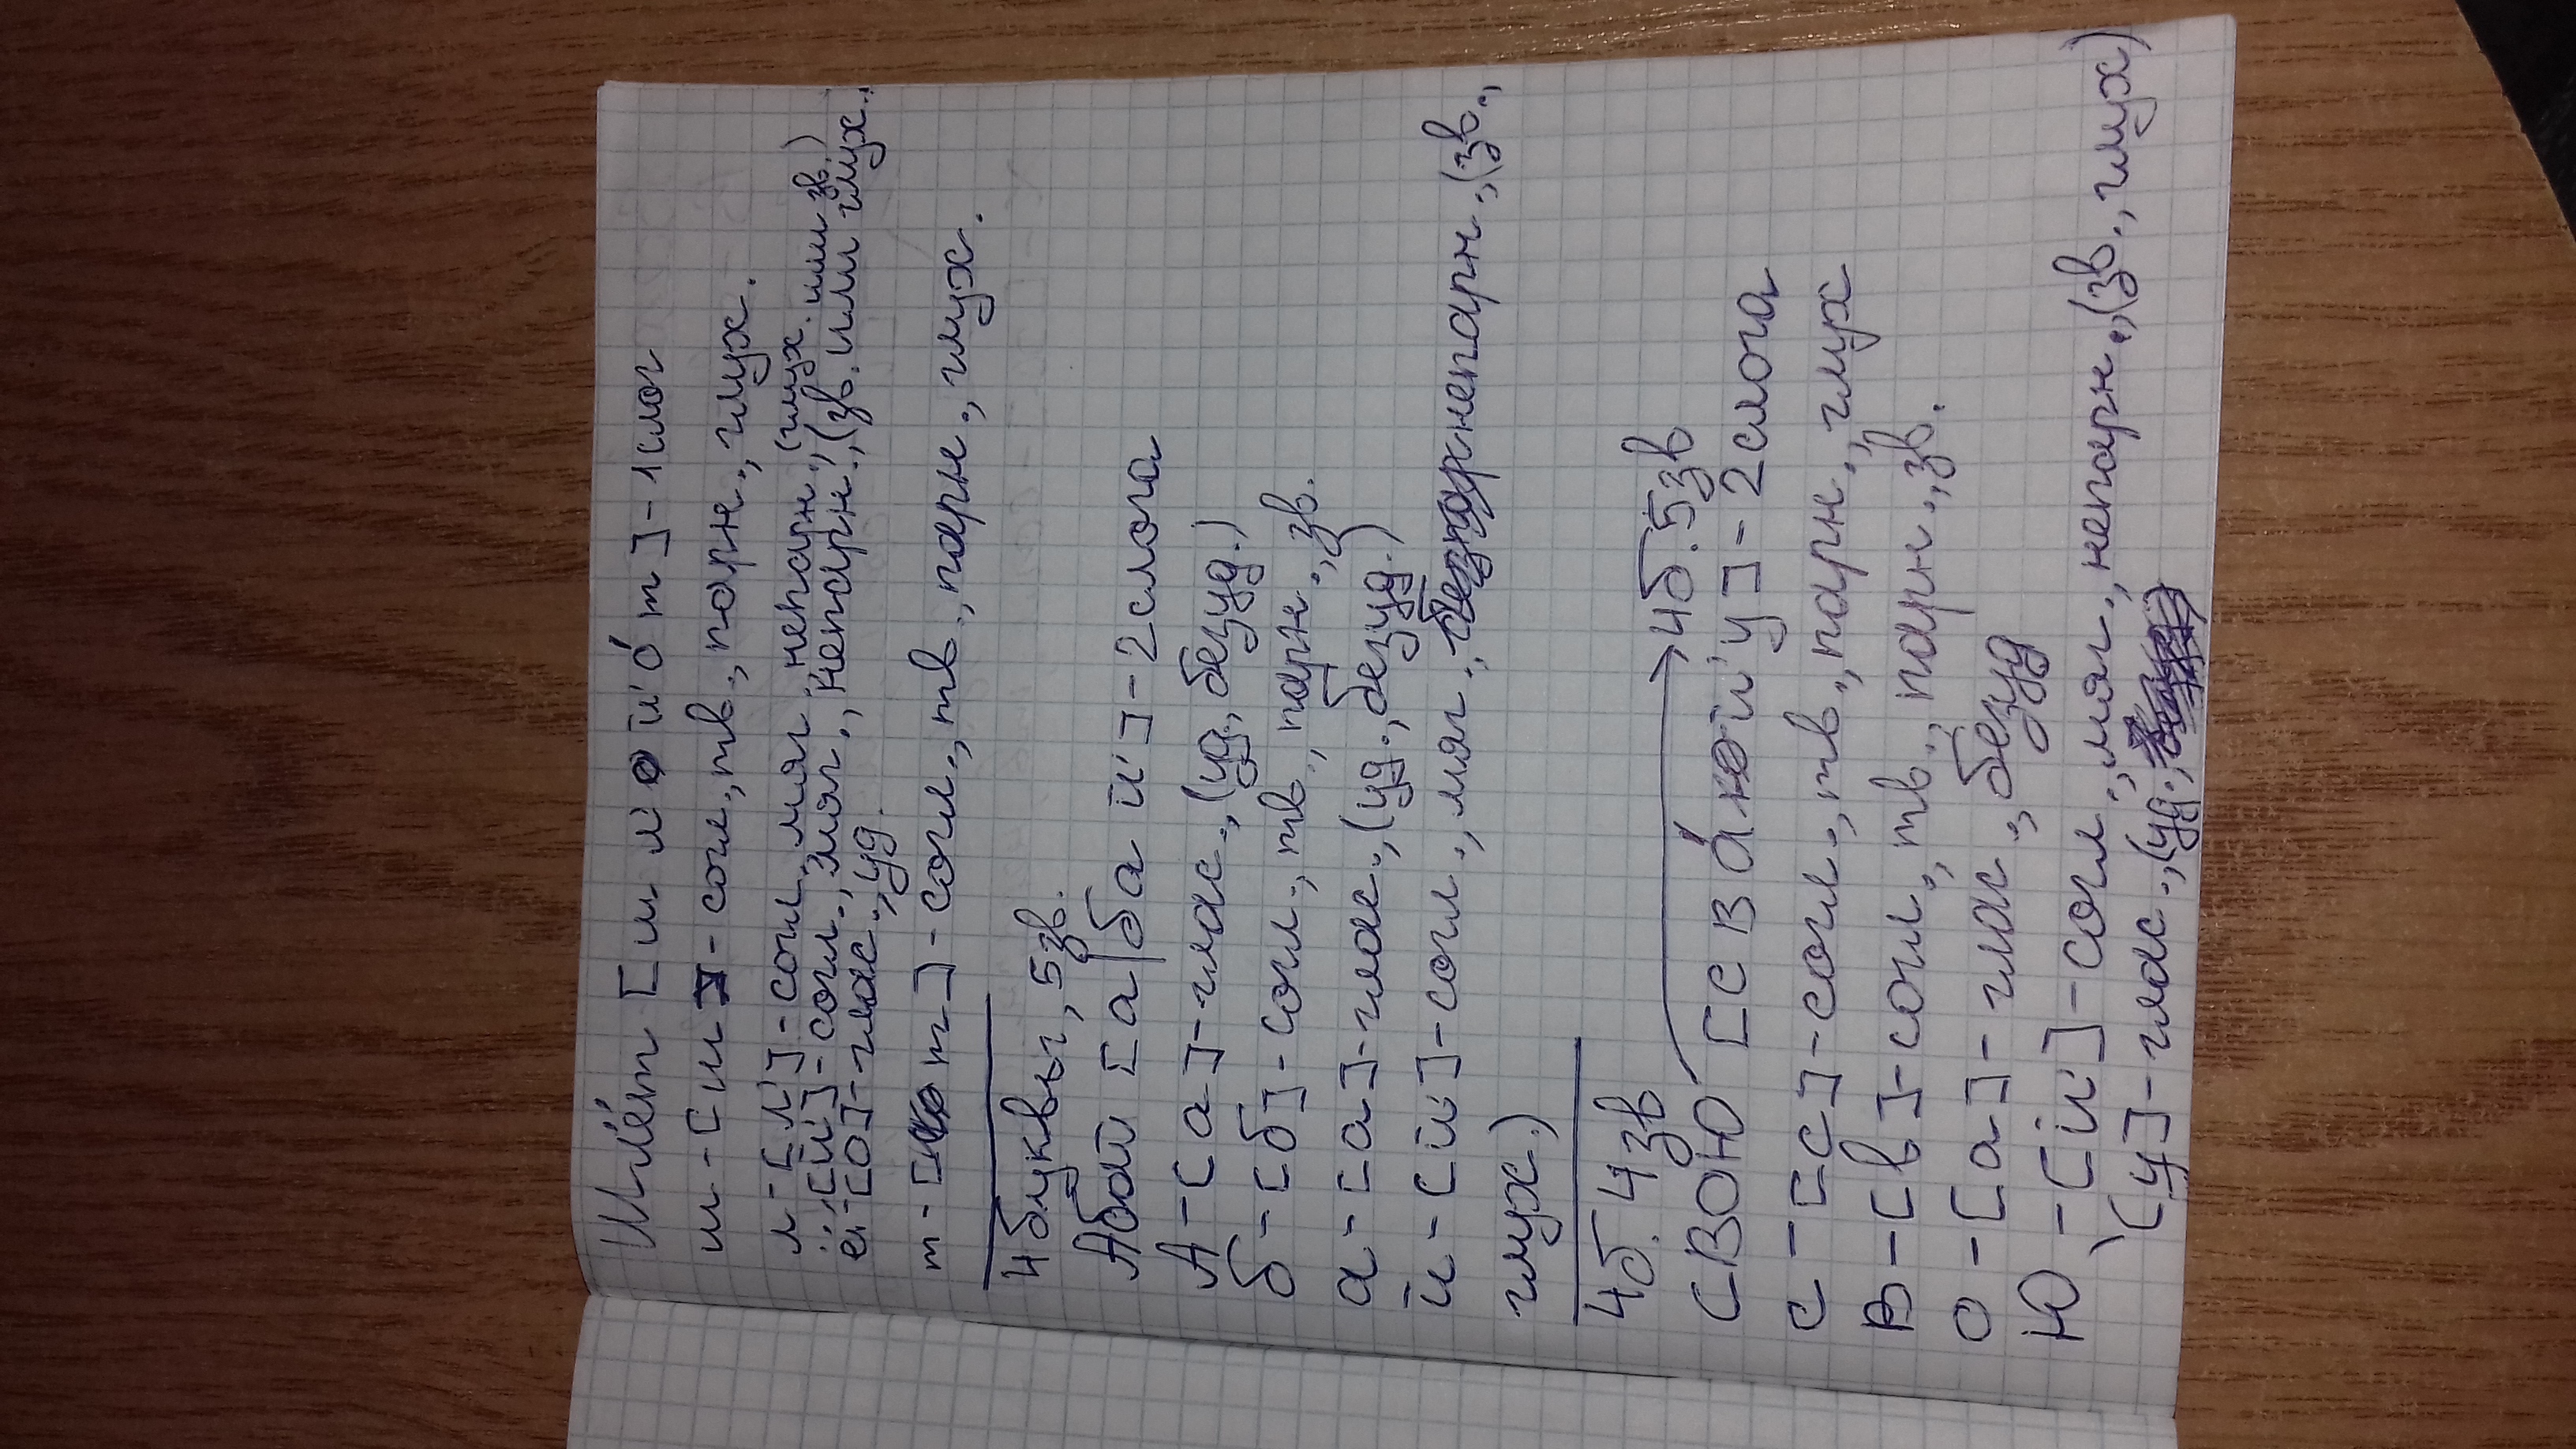 Шлёт [ш л' й' ó т] - 1 слог
ш - [ш] - согл., тв., парн., глух.
л - [л'] - согл., мяг., непарн., (глух. или зв.)
ё, [й'] - согл., мяг., непарн., (зв. или глух.,
ё - [о] - глас., уд.
т - [т] - согл., тв., парн., глух.
4 буквы, 5 зв.
Абай [а|ба й'] - 2 слога
А - [а] - глас., (уд., безуд.)
б - [б] - согл., тв., парн., зв.
а - [а] - глас., (уд., безуд.)
й - [й'] - согл., мяг., непарн., (зв.,
глух.)
4б. 4 зв
4б. 5зв
свою [с в á й' у] - 2 слога
с - [с] - согл., тв., парн., глух
В - [в] - согл., тв., парн., зв.
о - [а] - глас., безуд
Ю - [й'] - согл., мяг., непарн., (зв., глух)
[у] - глас., (уд.,